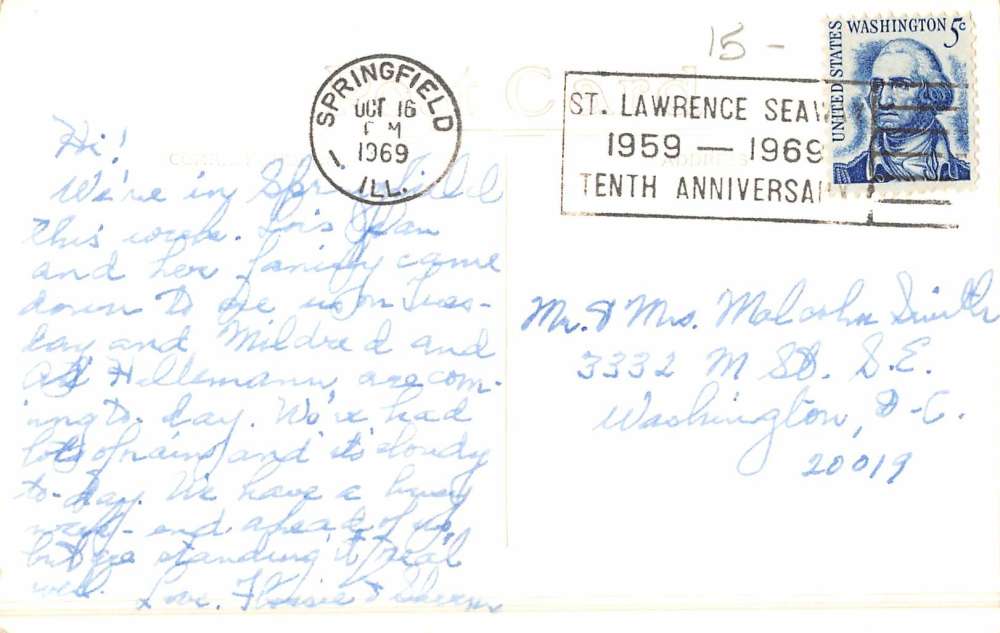 15 -
Post Card
SPRINGFIELD
OCT 16
PM
1969
ILL.
ST. LAWRENCE SEAWAY
1959 — 1969
TENTH ANNIVERSARY
UNITED STATES
WASHINGTON 5c
CORRESPONDENCE
ADDRESS
Hi!
We're in Springfield
this week. Lois Jean
and her family came
down to see us on Tues-
day and Mildred and
Hellemann are com-
ing to-day. We've had
lots of rain, and it's cloudy
to-day. We have a busy
week-end ahead of us,
but are standing it real
well. Love, Flossie &
Mr. & Mrs. Malcolm Smith
3332 M St. S.E.
Washington, D.C.
20019